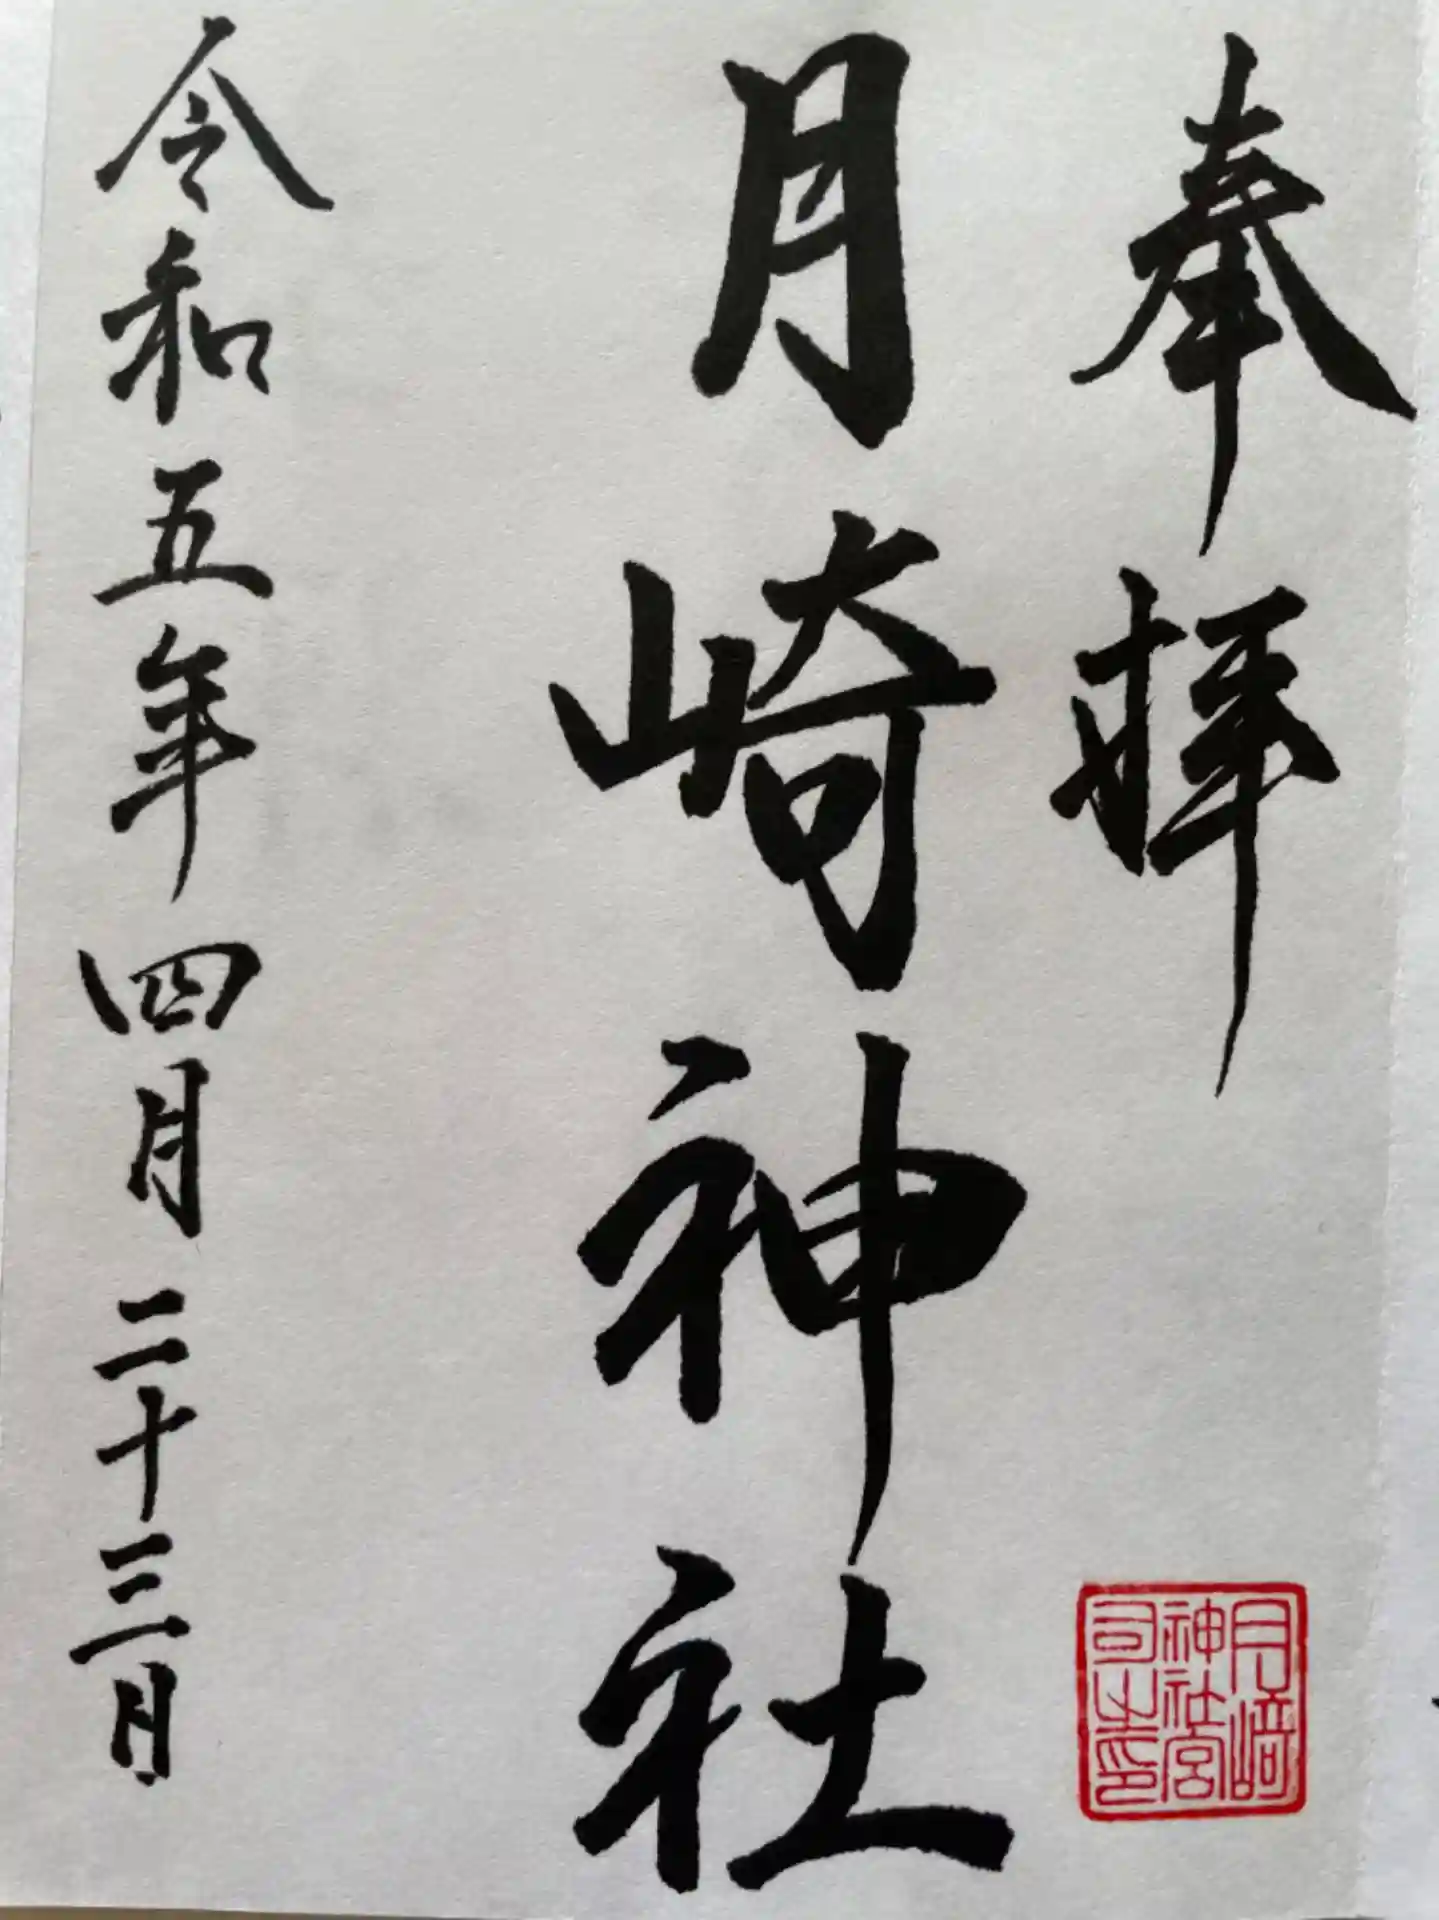 奉拝
月崎神社
月﨑
神社宮
司之印
令和五年四月二十三日